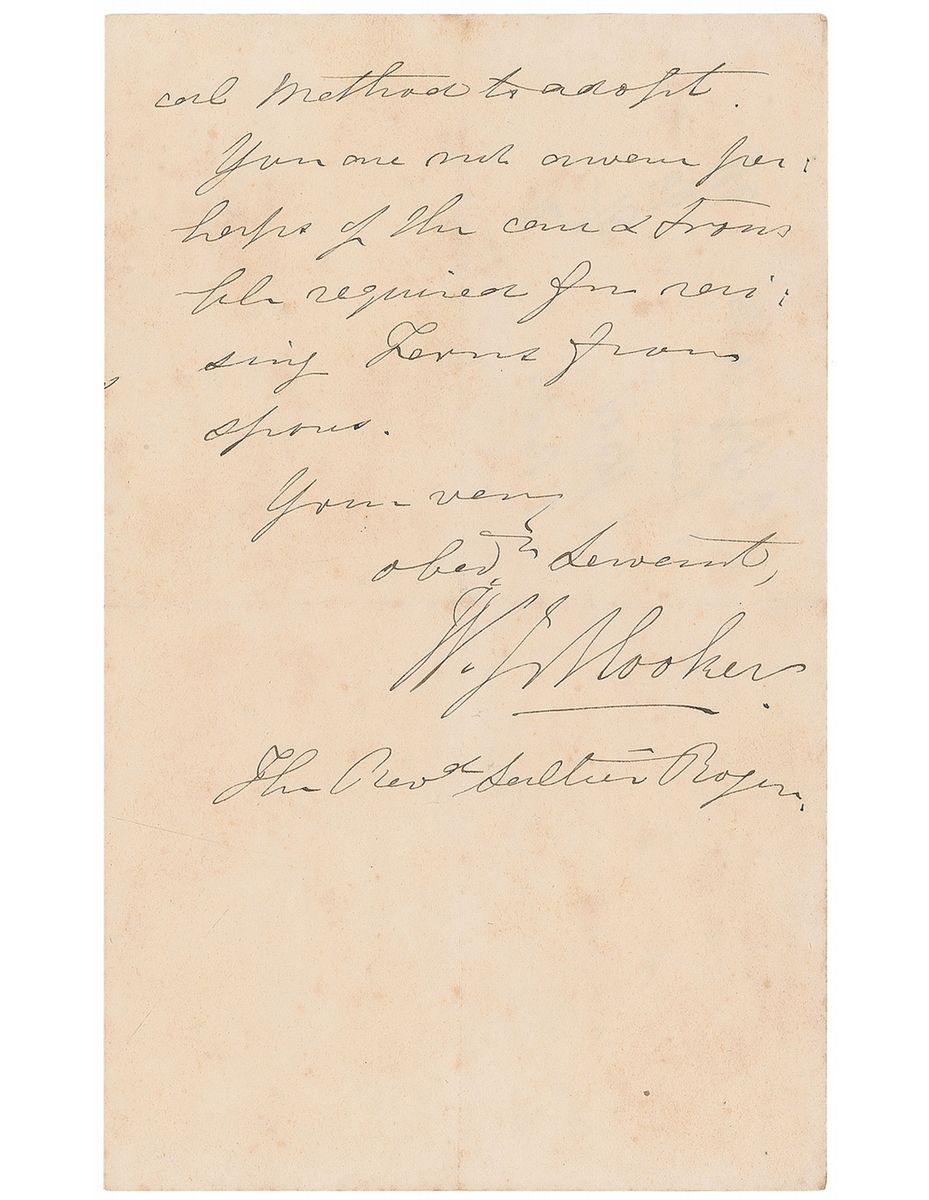 cal Method to adopt.
You are not aware per:
haps of the care & Trou
ble required for rai:
sing Ferns from
spores.
Your very
obedt. Servant,
W. J. Hooker.
The Revd. Saltier Rogers.